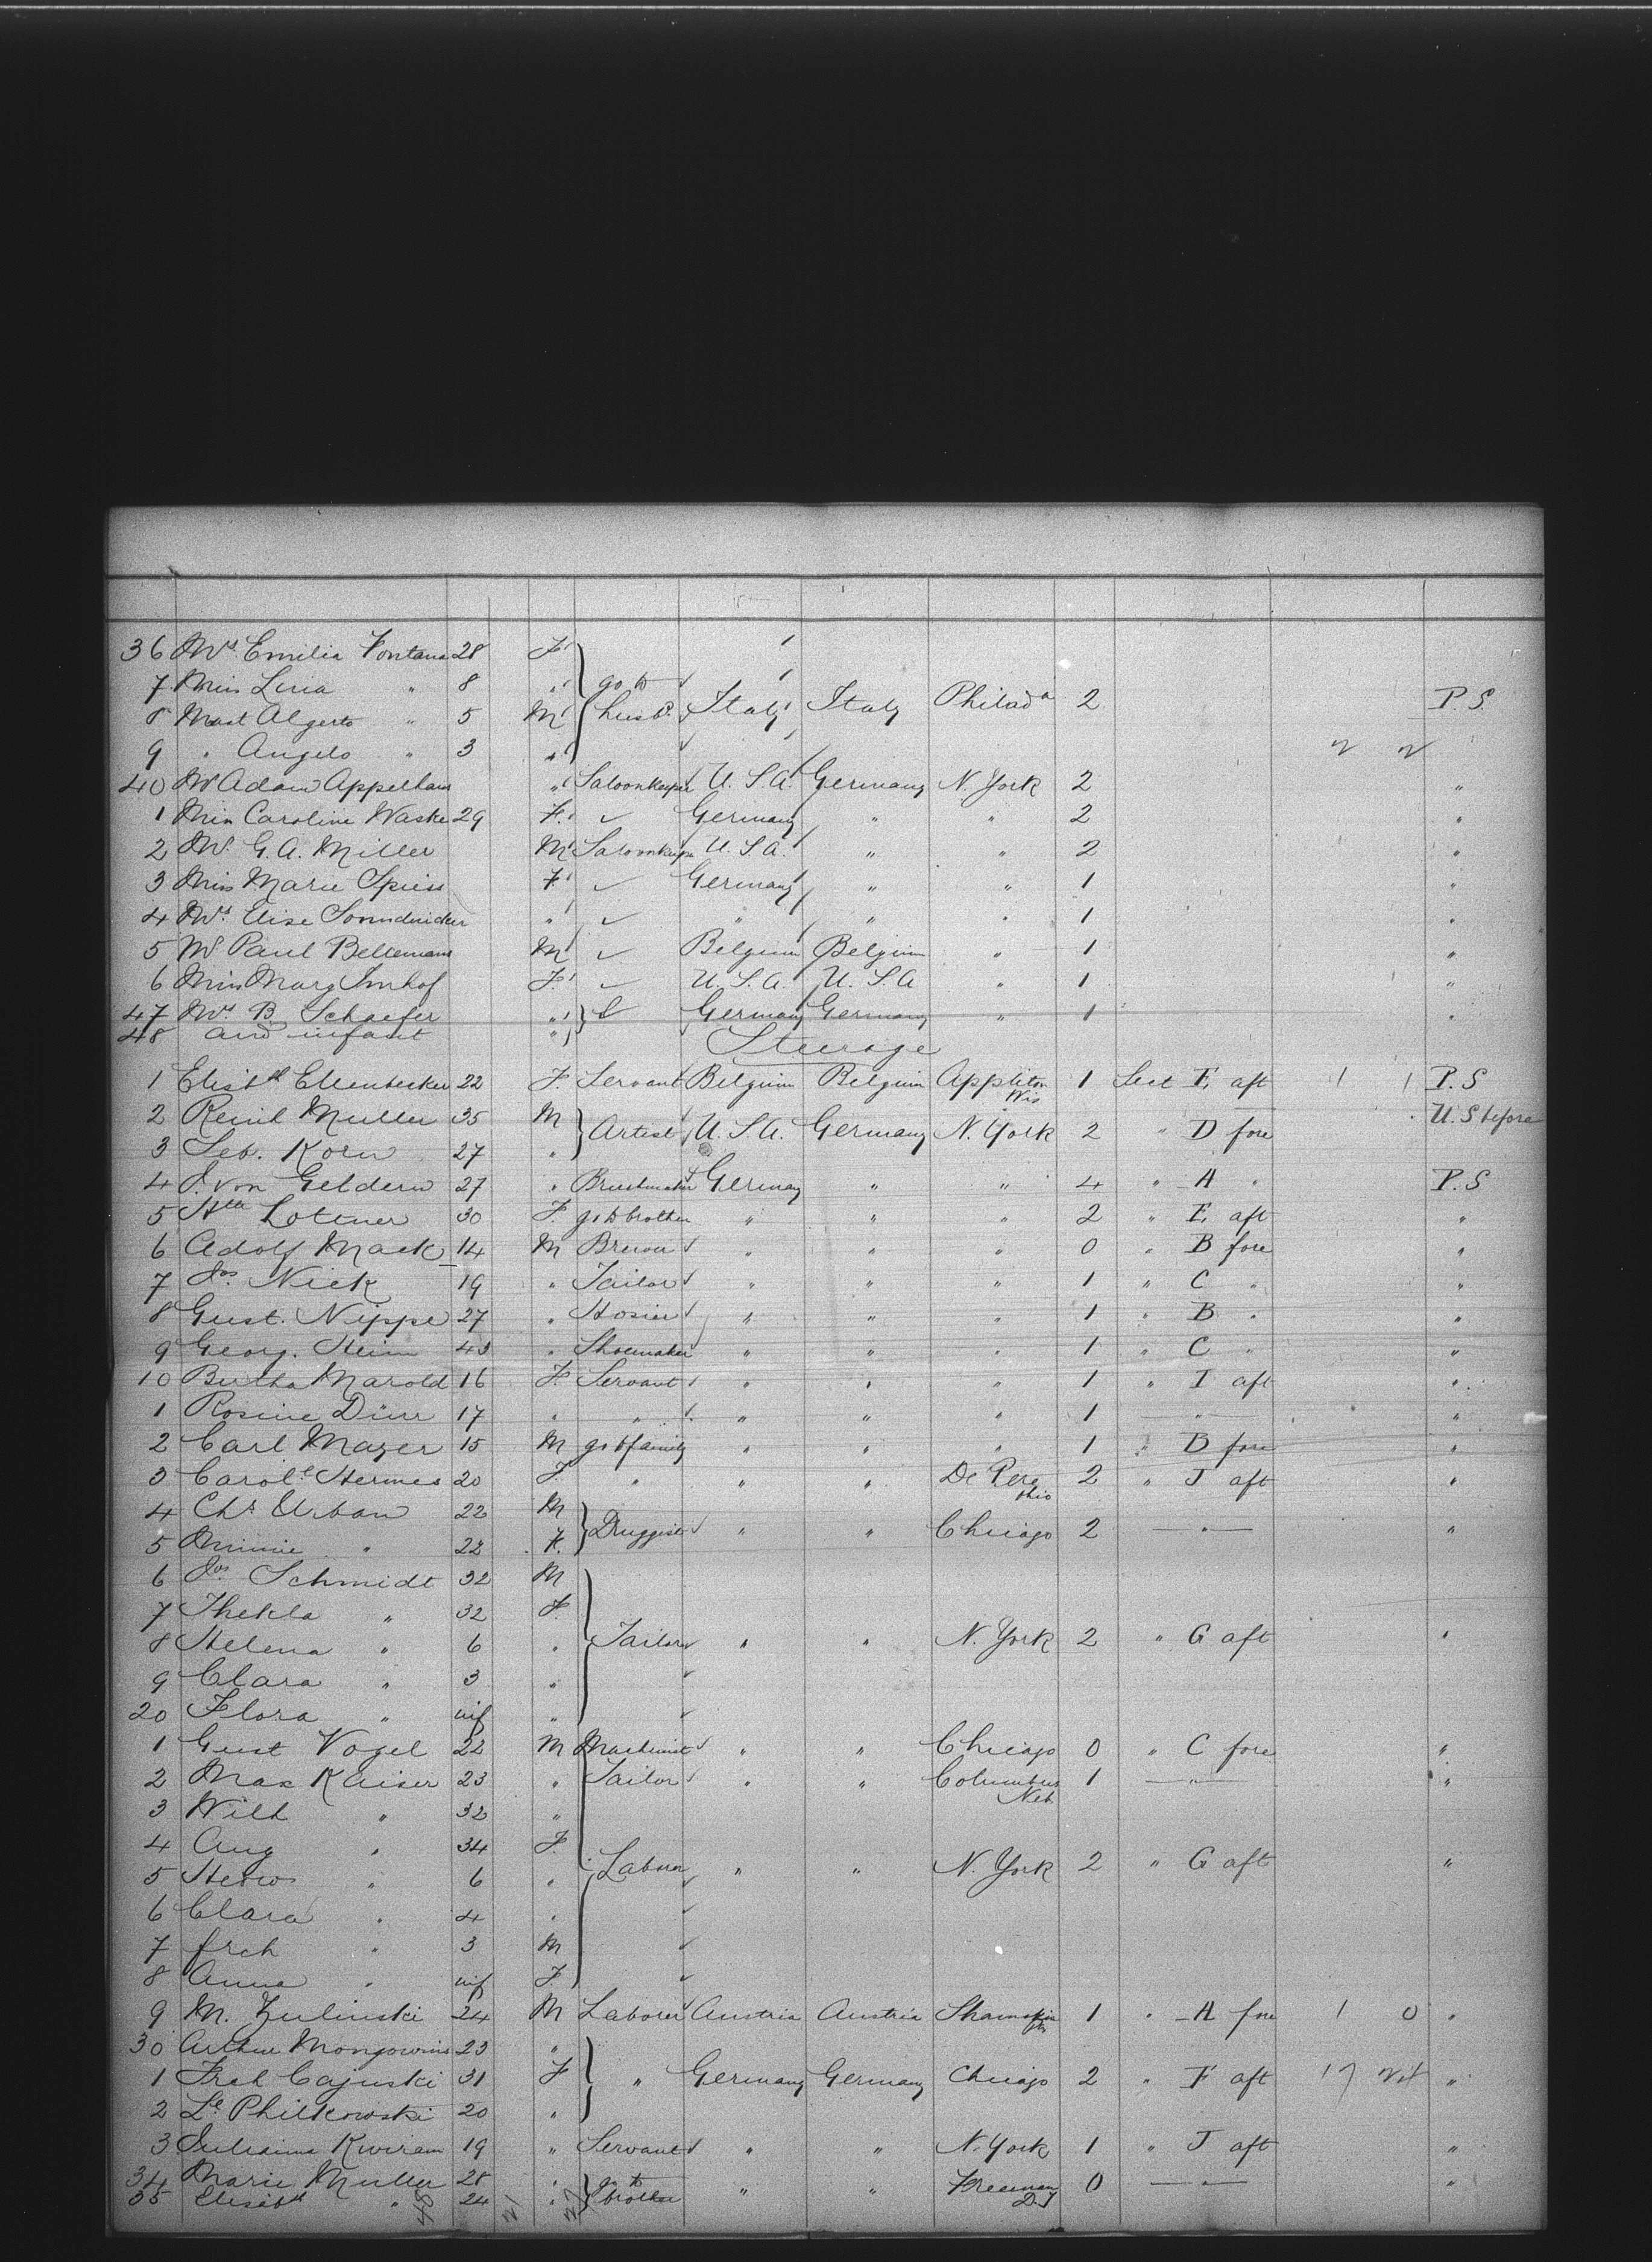 36 Mrs. Emilia Fontana 28 F
7 Miss Liria " 8 " go to
8 Mast Algerto " 5 M husbd. Italy Italy Philada 2 P.S.
9 " Angelo " 3 "
40 Mr Adam Appelhans " Saloonkeeper U.S.A. Germany N. York 2 "
1 Miss Caroline Waske 29 F. Germany " " 2 "
2 Mr. G. A. Miller M Saloonkeeper U.S.A. " " 2 "
3 Miss Marie Spiess F Germany " " 1 "
4 Mrs. Elise " " " " 1 "
5 Mr. Paul Bellemans M Belgium Belgium " 1 "
6 Miss Marg Imhof F. U.S.A. U.S.A " 1 "
47 Mrs. B. Schaefer " Germany Germany " 1 "
48 and infant "
Steerage
1 Elisbth Ellenbecker 22 F. Servant Belgium Belgium Appleton Wis 1 Sect E aft 1 1 P.S
2 Muller 35 M U.S before
Artist U.S.A. Germany N. York 2 " D fore
3 Seb. Korn 27 "
4 J. von Geldern 27 " Brushmaker Germany " " 4 " A " P.S
5 Lottner 30 F. go to brother " " " 2 " E aft "
6 Adolf Mack 14 M Brewer " " " 0 " B fore "
7 Jos. Nick 19 " Tailor " " " 1 " C " "
8 Gust. Nippe 27 " Hosier " " " 1 " B " "
9 Georg. Heim 43 " Shoemaker " " " 1 " C " "
10 Bertha Marold 16 F. Servant " " " 1 " I aft "
1 Rosine Dürr 17 " " " " " 1 " "
2 Carl Mayer 15 M go to family " " " 1 " B fore "
3 Carole Hermes 20 F. " " " De Pere Ohio 2 " J aft "
4 Chs Urban 22 M
Druggist " " Chicago 2 " "
5 Minnie " 22 F.
6 Jos. Schmidt 32 M
7 Thekla " 32 F.
8 Helena " 6 " Tailor " " N. York 2 " G aft "
9 Clara " 3 "
20 Flora " inf "
1 Gust Vogel 22 M Machinist " " Chicago 0 " C fore "
2 Max Kaiser 23 " Tailor " " Columbus Neb. 1 " "
3 Wilh " 32 "
4 Aug " 34 F.
Labour " " N. York 2 " G aft "
5 " 6 "
6 Clara " 4 "
7 frch " 3 M
8 Anna " inf F.
9 M. Zulinski 24 M Laborer Austria Austria 1 " A fore 1 0 "
30 23 "
1 Frch Cajuski 31 F " Germany Germany Chicago 2 " F aft 17 "
2 Le Philkowski 20 "
3 Juliaine Kwiram 19 " Servant " " N. York 1 " J aft "
34 Marie Muller 28 " go to
" " Freeman D.T 0 " "
35 Elisabth " 24 " brother
48 21 27